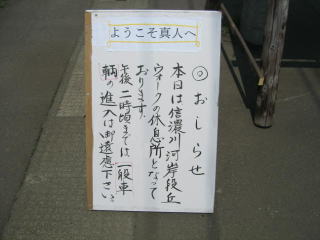 ようこそ真人へ
◎おしらせ
本日は信濃川河岸段丘
ウォークの休息所となって
おります。
午後二時頃までは、一般車
輌の進入は御遠慮下さい。